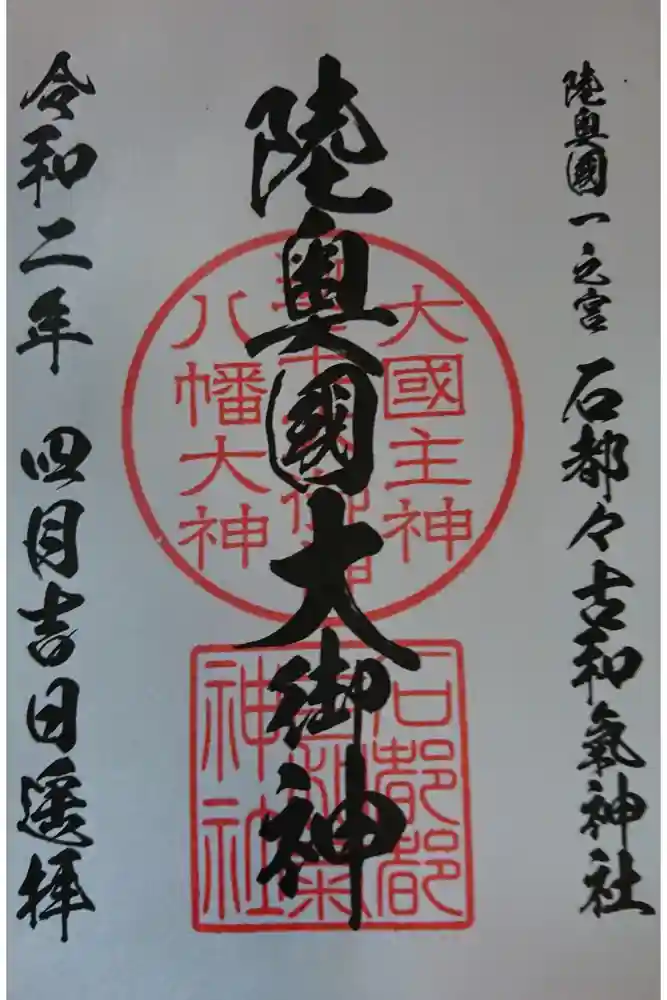 陸奥國一之宮 石都々古和氣神社
陸奥國大御神
令和二年 四月吉日遥拝
大國主神
八幡大神
石都都
神社